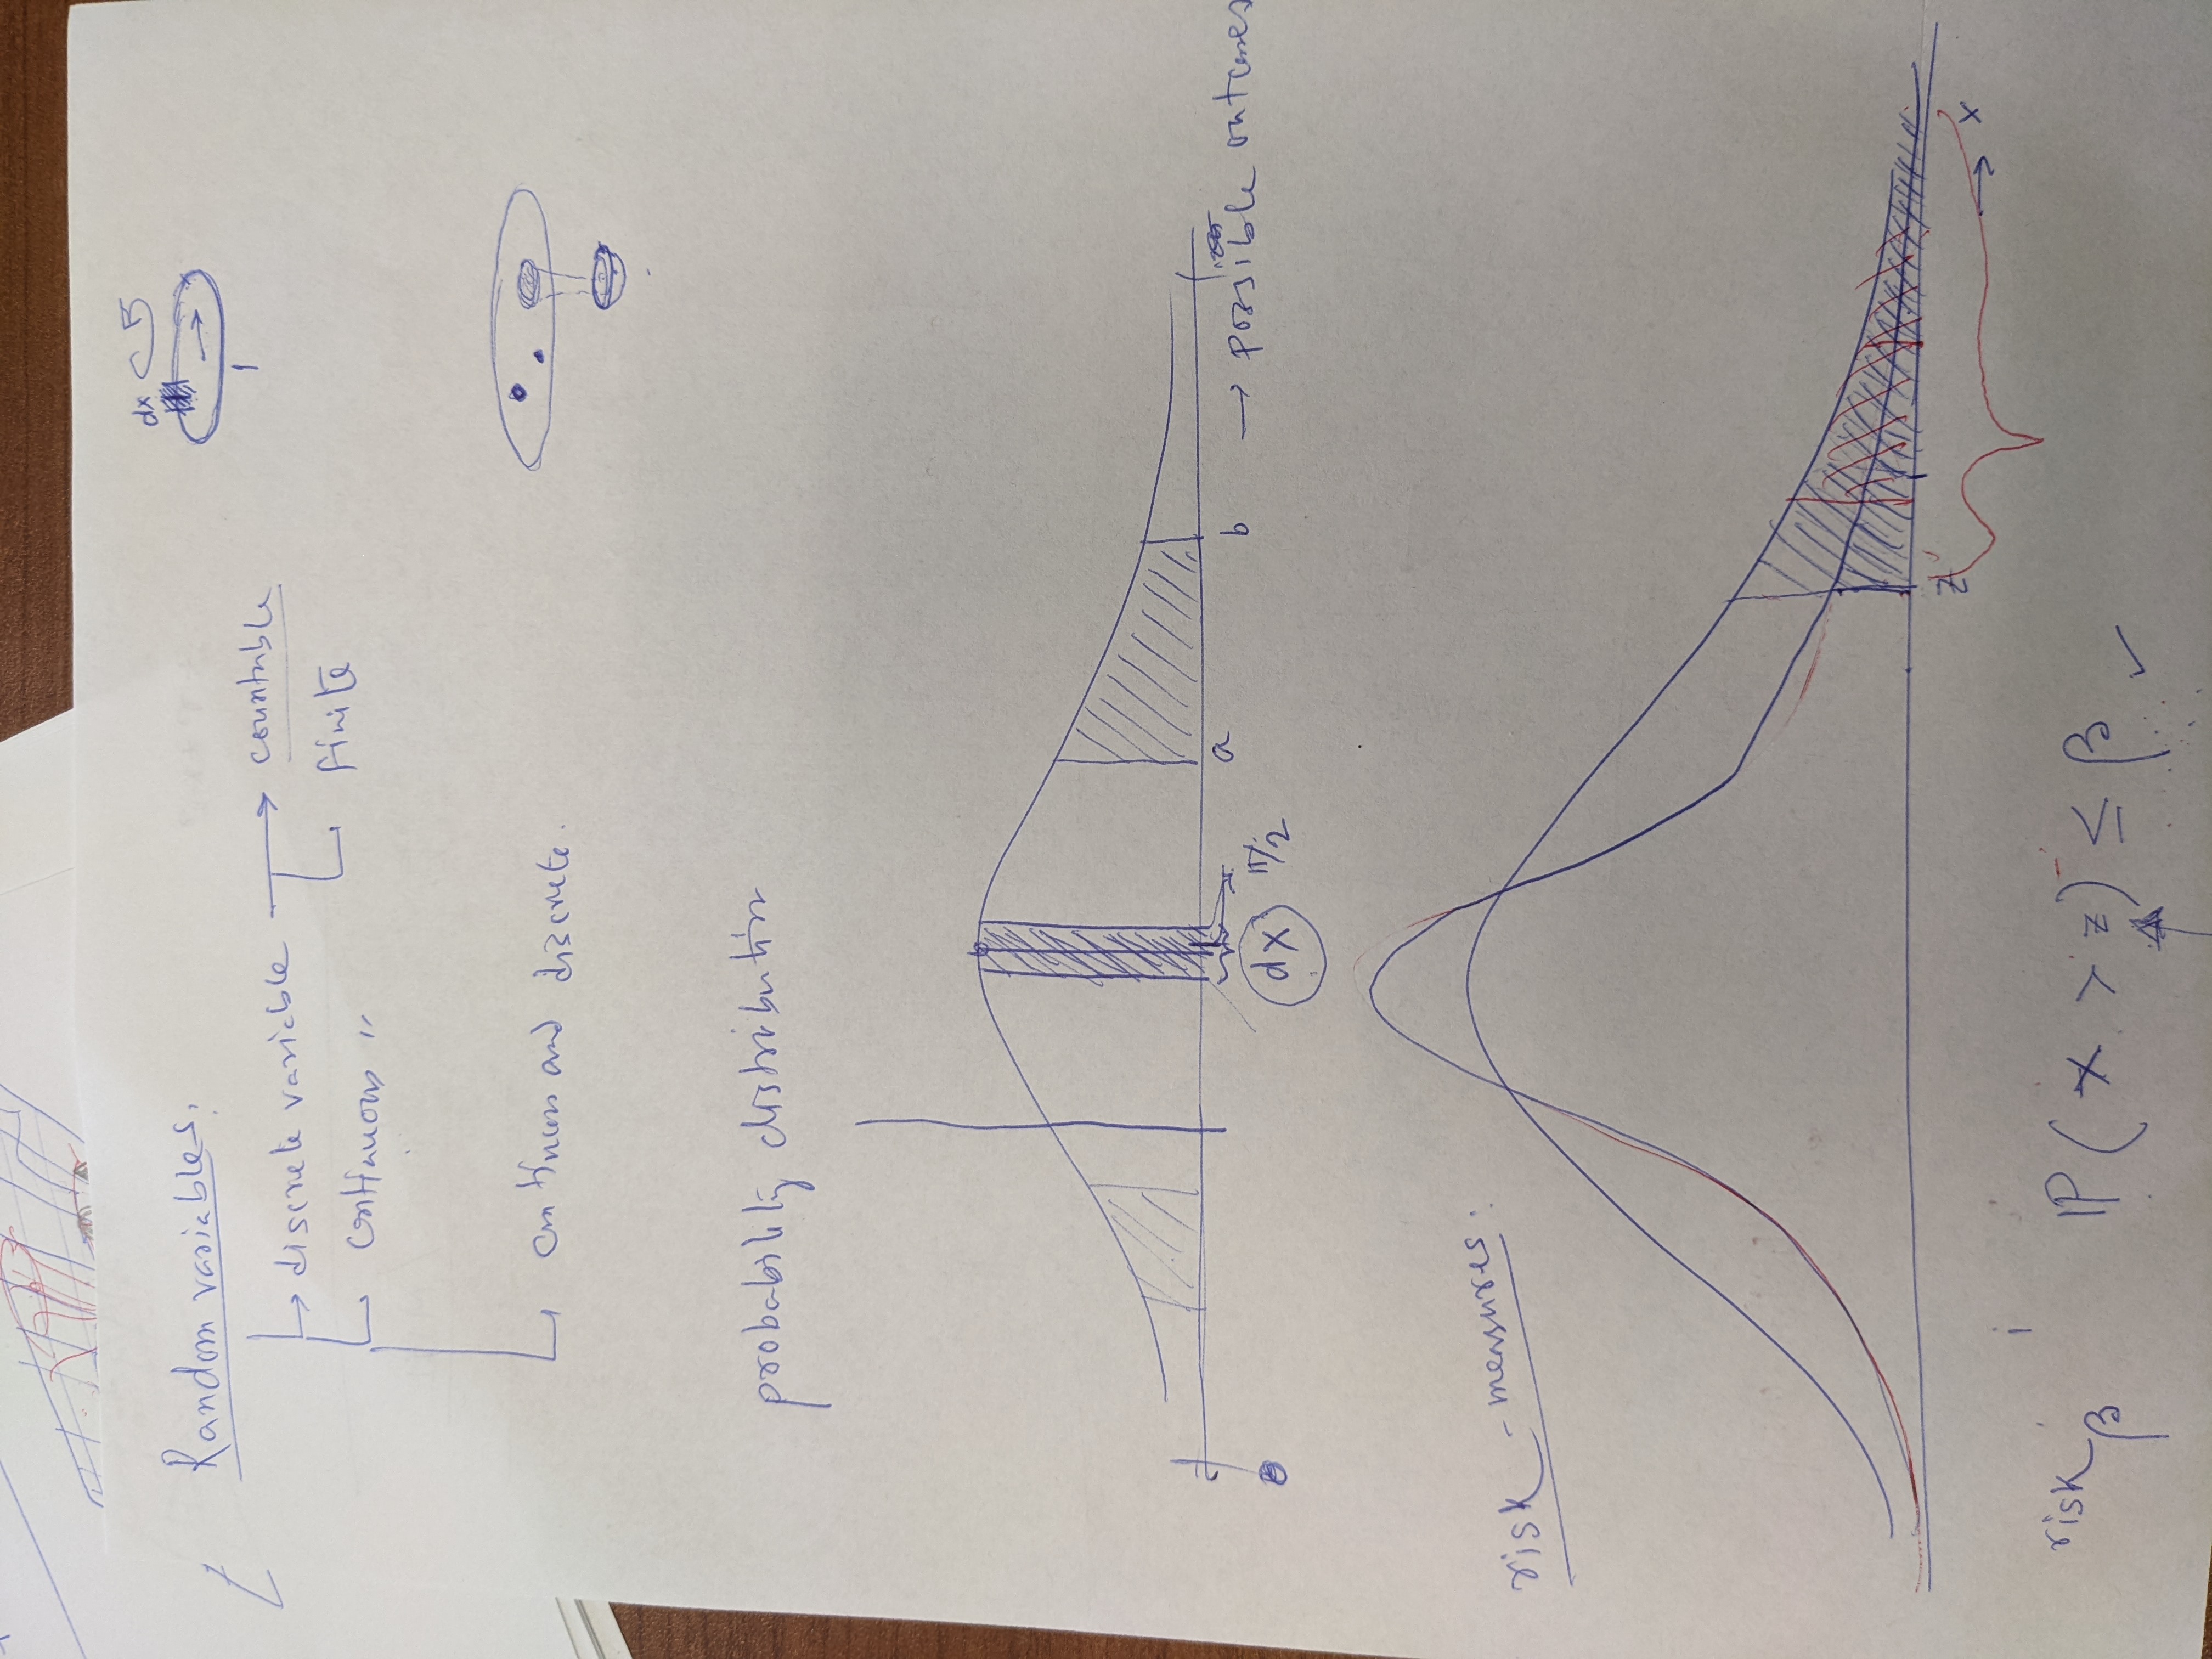 Random variables:
→ discrete variable → countable
finite
continuous "
continuous and discrete.
dx
5
probability distribution
a
b
→ possible outcomes
π/2
dx
0
risk-measures:
z
→ x
risk β : P(x > z) ≤ β ✓